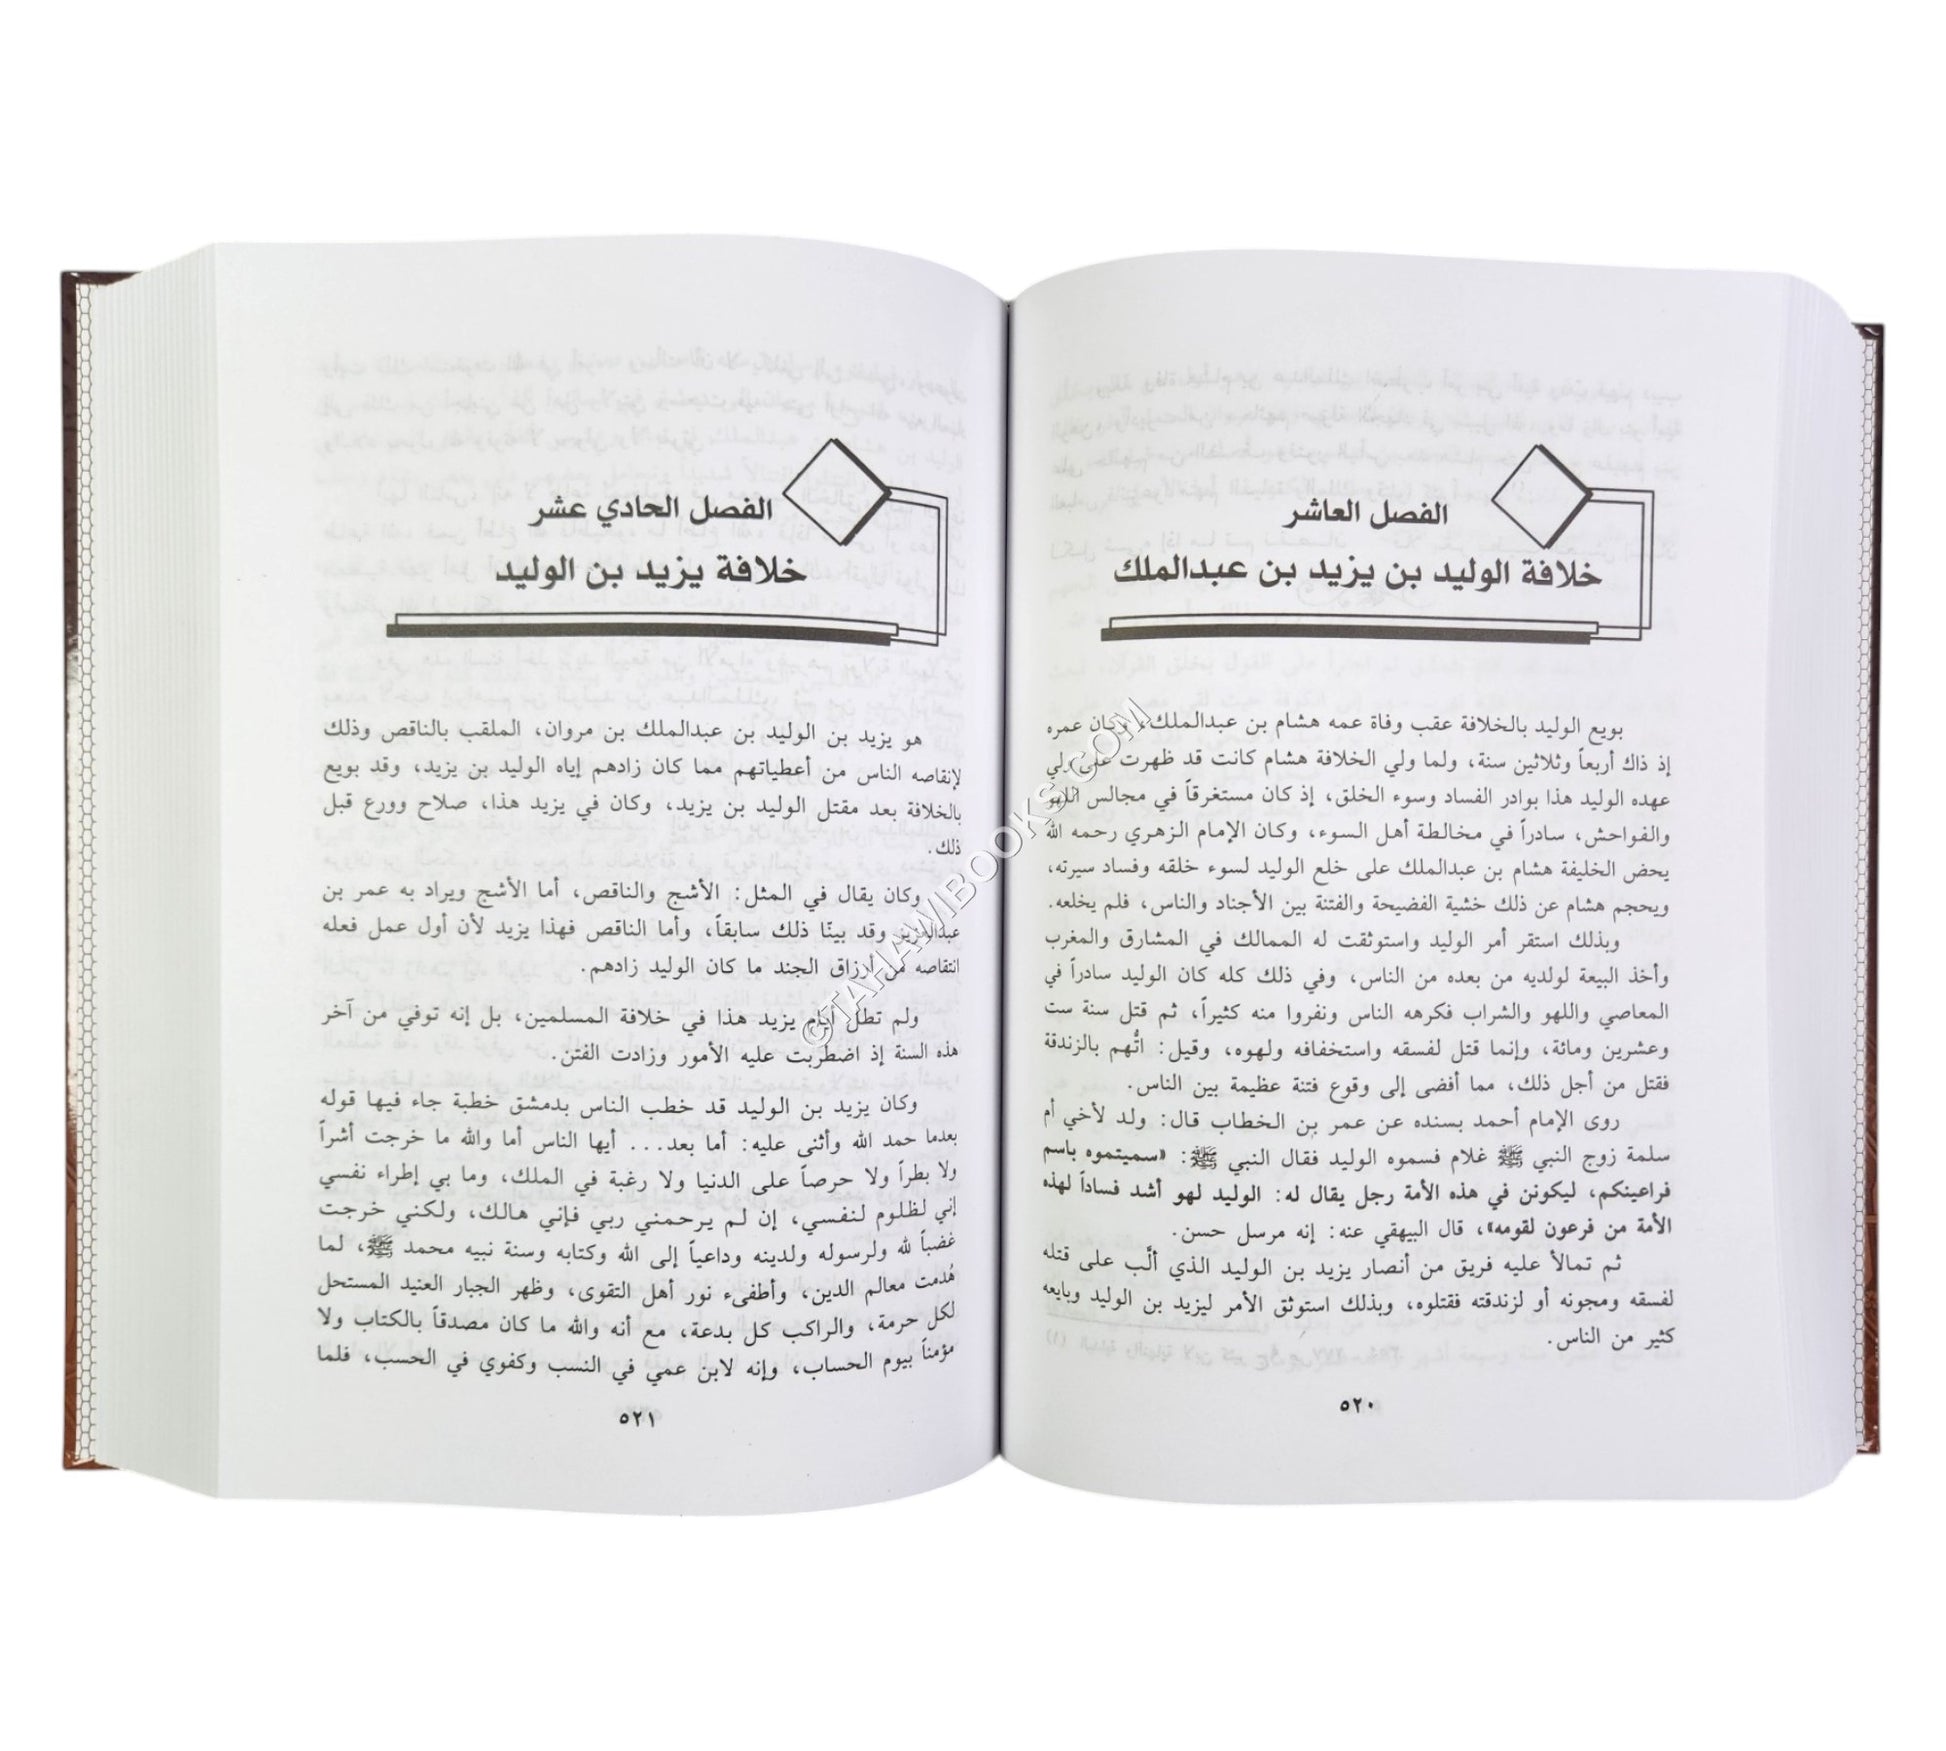 الفصل العاشر
خلافة الوليد بن يزيد بن عبدالملك
بويع الوليد بالخلافة عقب وفاة عمه هشام بن عبدالملك، وكان عمره
إذ ذاك أربعاً وثلاثين سنة، ولما ولي الخلافة هشام كانت قد ظهرت على ولي
عهده الوليد هذا بوادر الفساد وسوء الخلق، إذ كان مستغرقاً في مجالس اللهو
والفواحش، سادراً في مخالطة أهل السوء، وكان الإمام الزهري رحمه الله
يحض الخليفة هشام بن عبدالملك على خلع الوليد لسوء خلقه وفساد سيرته،
ويحجم هشام عن ذلك خشية الفضيحة والفتنة بين الأجناد والناس، فلم يخلعه.
وبذلك استقر أمر الوليد واستوثقت له الممالك في المشارق والمغرب
وأخذ البيعة لولديه من بعده من الناس، وفي ذلك كله كان الوليد سادراً في
المعاصي واللهو والشراب فكرهه الناس ونفروا منه كثيراً، ثم قتل سنة ست
وعشرين ومائة، وإنما قتل لفسقه واستخفافه ولهوه، وقيل: اتُّهم بالزندقة
فقتل من أجل ذلك، مما أفضى إلى وقوع فتنة عظيمة بين الناس.
روى الإمام أحمد بسنده عن عمر بن الخطاب قال: ولد لأخي أم
سلمة زوج النبي ﷺ غلام فسموه الوليد فقال النبي ﷺ: «سميتموه باسم
فراعينكم، ليكونن في هذه الأمة رجل يقال له: الوليد لهو أشد فساداً لهذه
الأمة من فرعون لقومه»، قال البيهقي عنه: إنه مرسل حسن.
ثم تمالأ عليه فريق من أنصار يزيد بن الوليد الذي ألَّب على قتله
لفسقه ومجونه أو لزندقته فقتلوه، وبذلك استوثق الأمر ليزيد بن الوليد وبايعه
كثير من الناس.
٥٢٠
الفصل الحادي عشر
خلافة يزيد بن الوليد
هو يزيد بن الوليد بن عبدالملك بن مروان، الملقب بالناقص وذلك
لإنقاصه الناس من أعطياتهم مما كان زادهم إياه الوليد بن يزيد، وقد بويع
بالخلافة بعد مقتل الوليد بن يزيد، وكان في يزيد هذا، صلاح وورع قبل
ذلك.
وكان يقال في المثل: الأشج والناقص، أما الأشج ويراد به عمر بن
عبدالعزيز وقد بينّا ذلك سابقاً، وأما الناقص فهذا يزيد لأن أول عمل فعله
انتقاصه من أرزاق الجند ما كان الوليد زادهم.
ولم تطل أيام يزيد هذا في خلافة المسلمين، بل إنه توفي من آخر
هذه السنة إذ اضطربت عليه الأمور وزادت الفتن.
وكان يزيد بن الوليد قد خطب الناس بدمشق خطبة جاء فيها قوله
بعدما حمد الله وأثنى عليه: أما بعد... أيها الناس أما والله ما خرجت أشراً
ولا بطراً ولا حرصاً على الدنيا ولا رغبة في الملك، وما بي إطراء نفسي
إني لظلوم لنفسي، إن لم يرحمني ربي فإني هالك، ولكني خرجت
غضباً لله ولرسوله ولدينه وداعياً إلى الله وكتابه وسنة نبيه محمد ﷺ، لما
هُدمت معالم الدين، وأطفىء نور أهل التقوى، وظهر الجبار العنيد المستحل
لكل حرمة، والراكب كل بدعة، مع أنه والله ما كان مصدقاً بالكتاب ولا
مؤمناً بيوم الحساب، وإنه لابن عمي في النسب وكفوي في الحسب، فلما
٥٢١
©TAHAWIBOOKS.COM